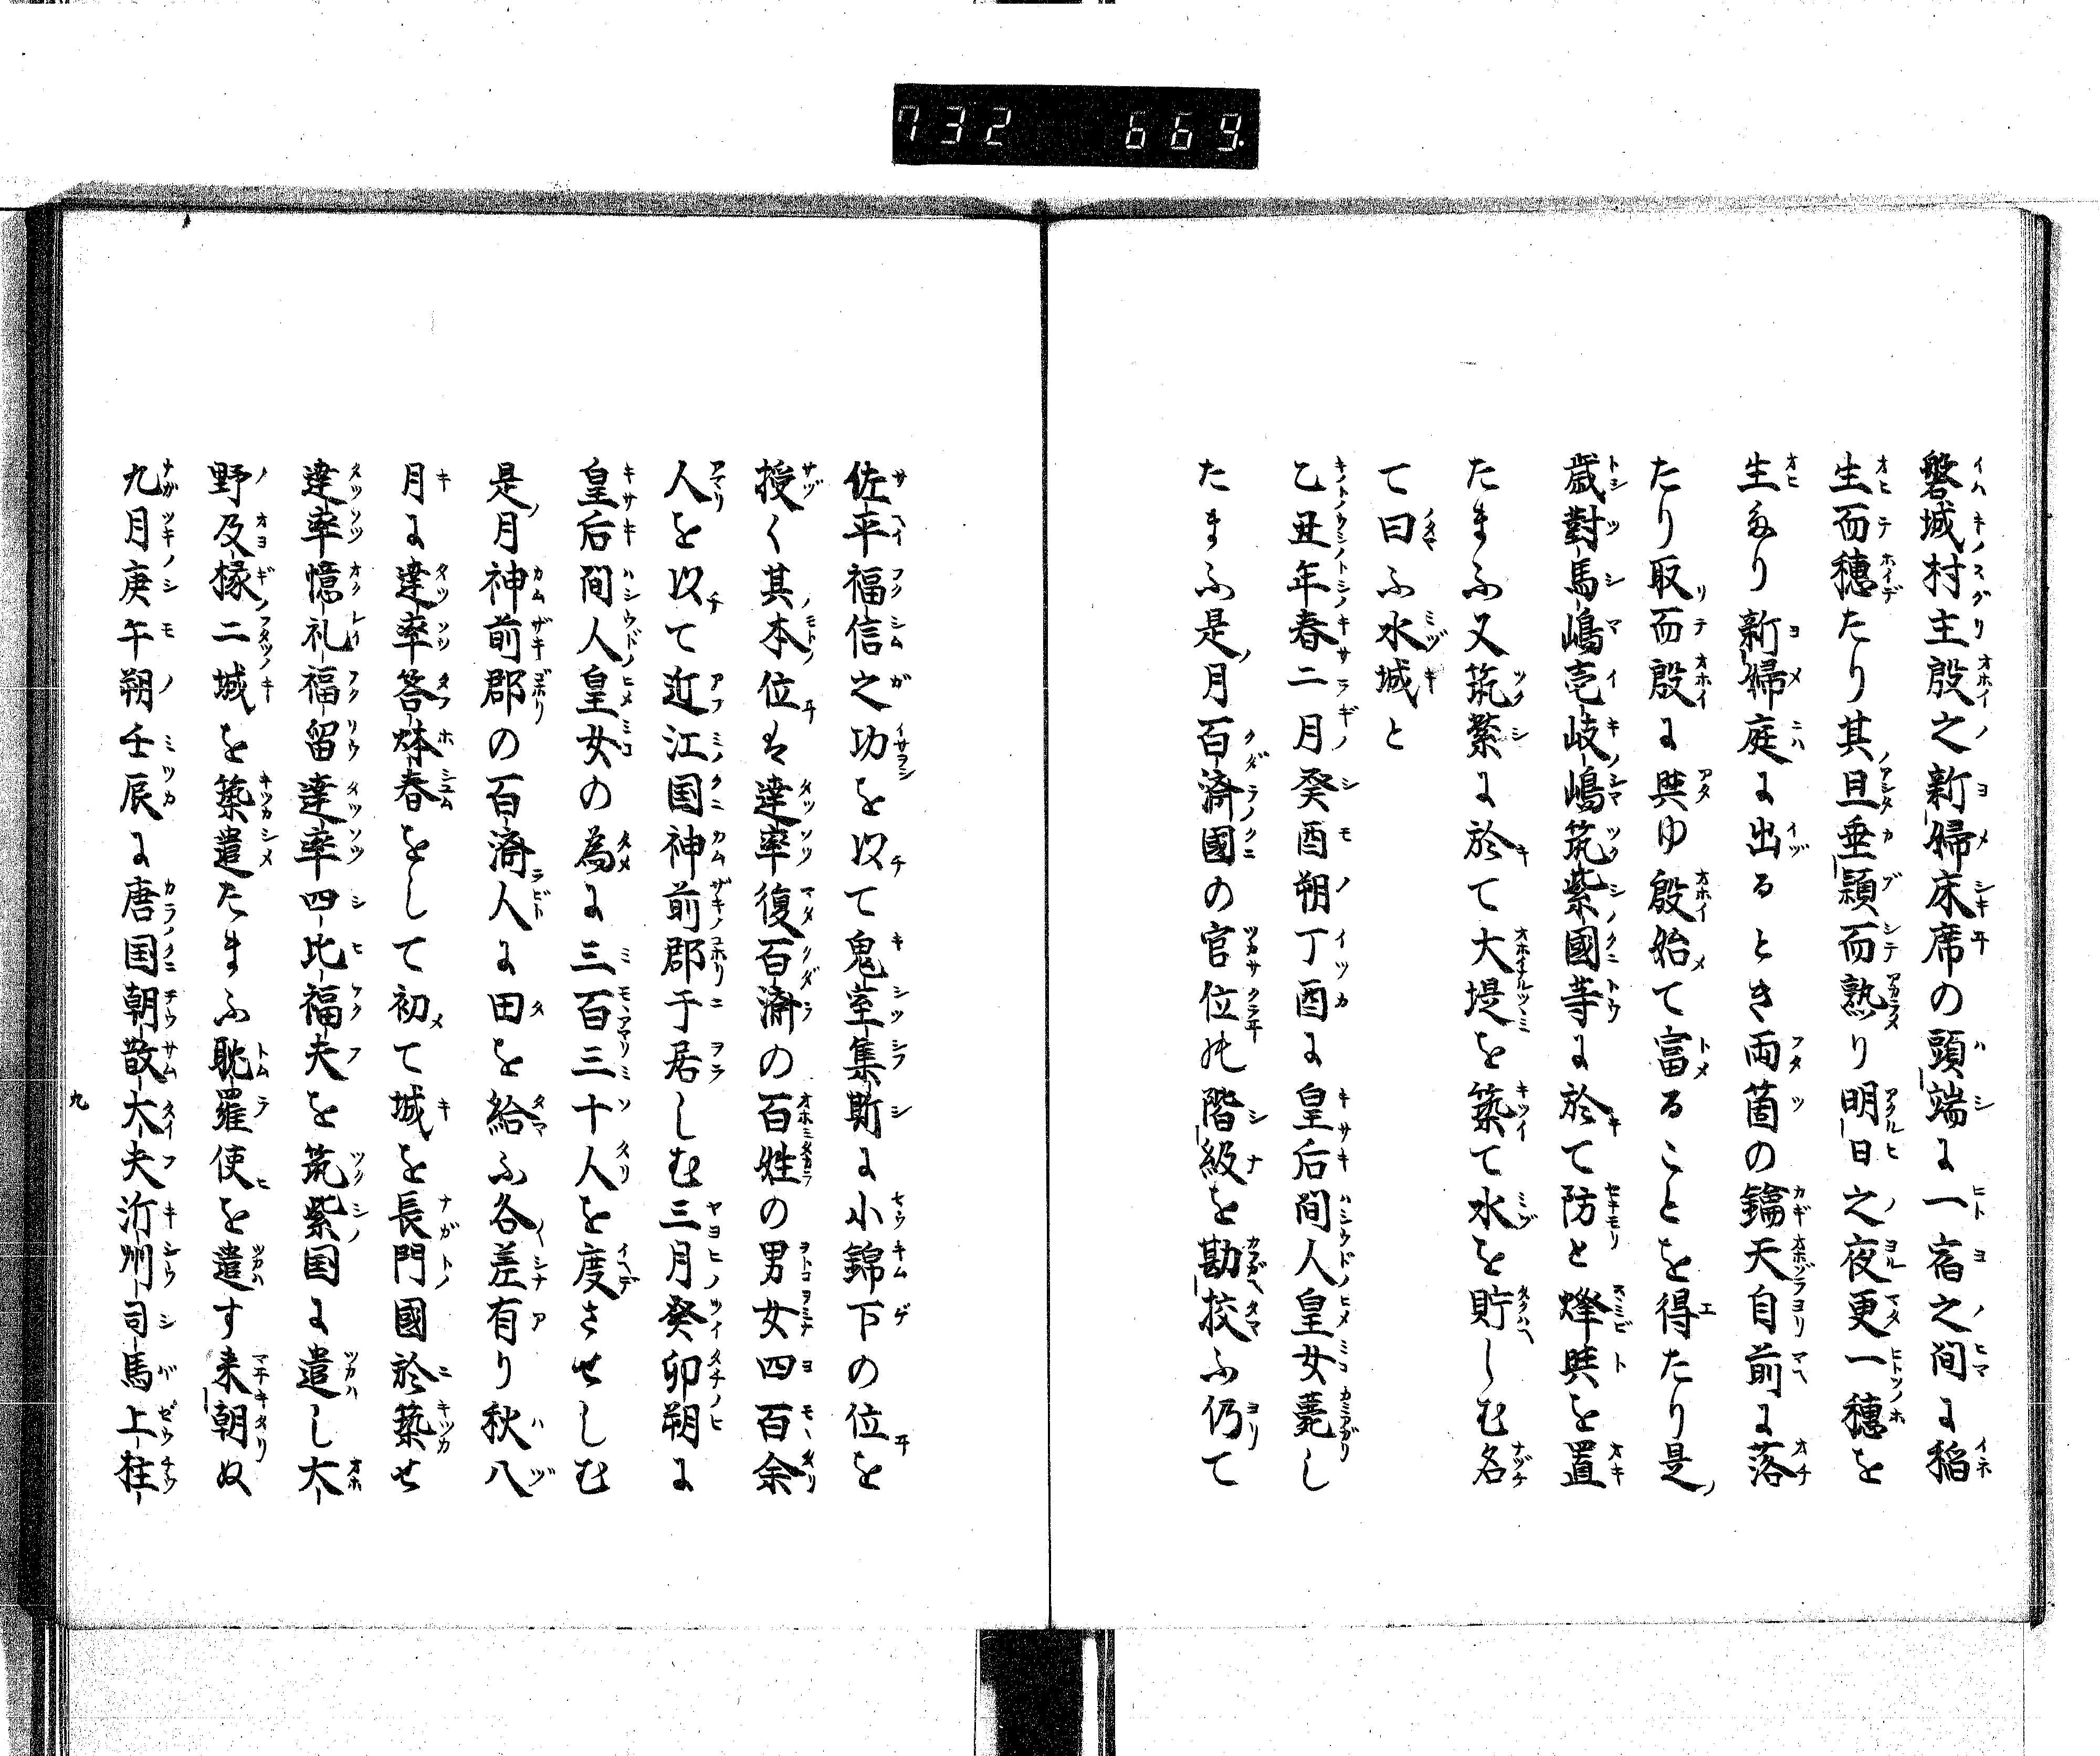 732 669.
磐城村主殷之新婦床席の頭端に一宿之間に稲
生而穂たり其旦垂頴而熟り明日之夜更一穂を
生なり新婦庭に出るとき両箇の鑰天自前に落
たり取而殷に與ゆ殷始て富ることを得たり是
歳對馬嶋壱岐嶋筑紫國等に於て防と烽與を置
たまふ又筑紫に於て大堤を築て水を貯しむ名
て曰ふ水城と
乙丑年春二月癸酉朔丁酉に皇后間人皇女薨し
たまふ是月百済國の官位の階級を勘校ふ仍て
佐平福信之功を以て鬼室集斯に小錦下の位を
授く其本位は達率復百済の百姓の男女四百余
人を以て近江国神前郡于居しむ三月癸卯朔に
皇后間人皇女の為に三百三十人を度させしむ
是月神前郡の百済人に田を給ふ各差有り秋八
月に達率答㶱春をして初て城を長門國於築せ
達率憶礼福留達率四比福夫を筑紫国に遣し大
野及椽二城を築遣たまふ耽羅使を遣す来朝ぬ
九月庚午朔壬辰に唐国朝散大夫沂州司馬上柱
九